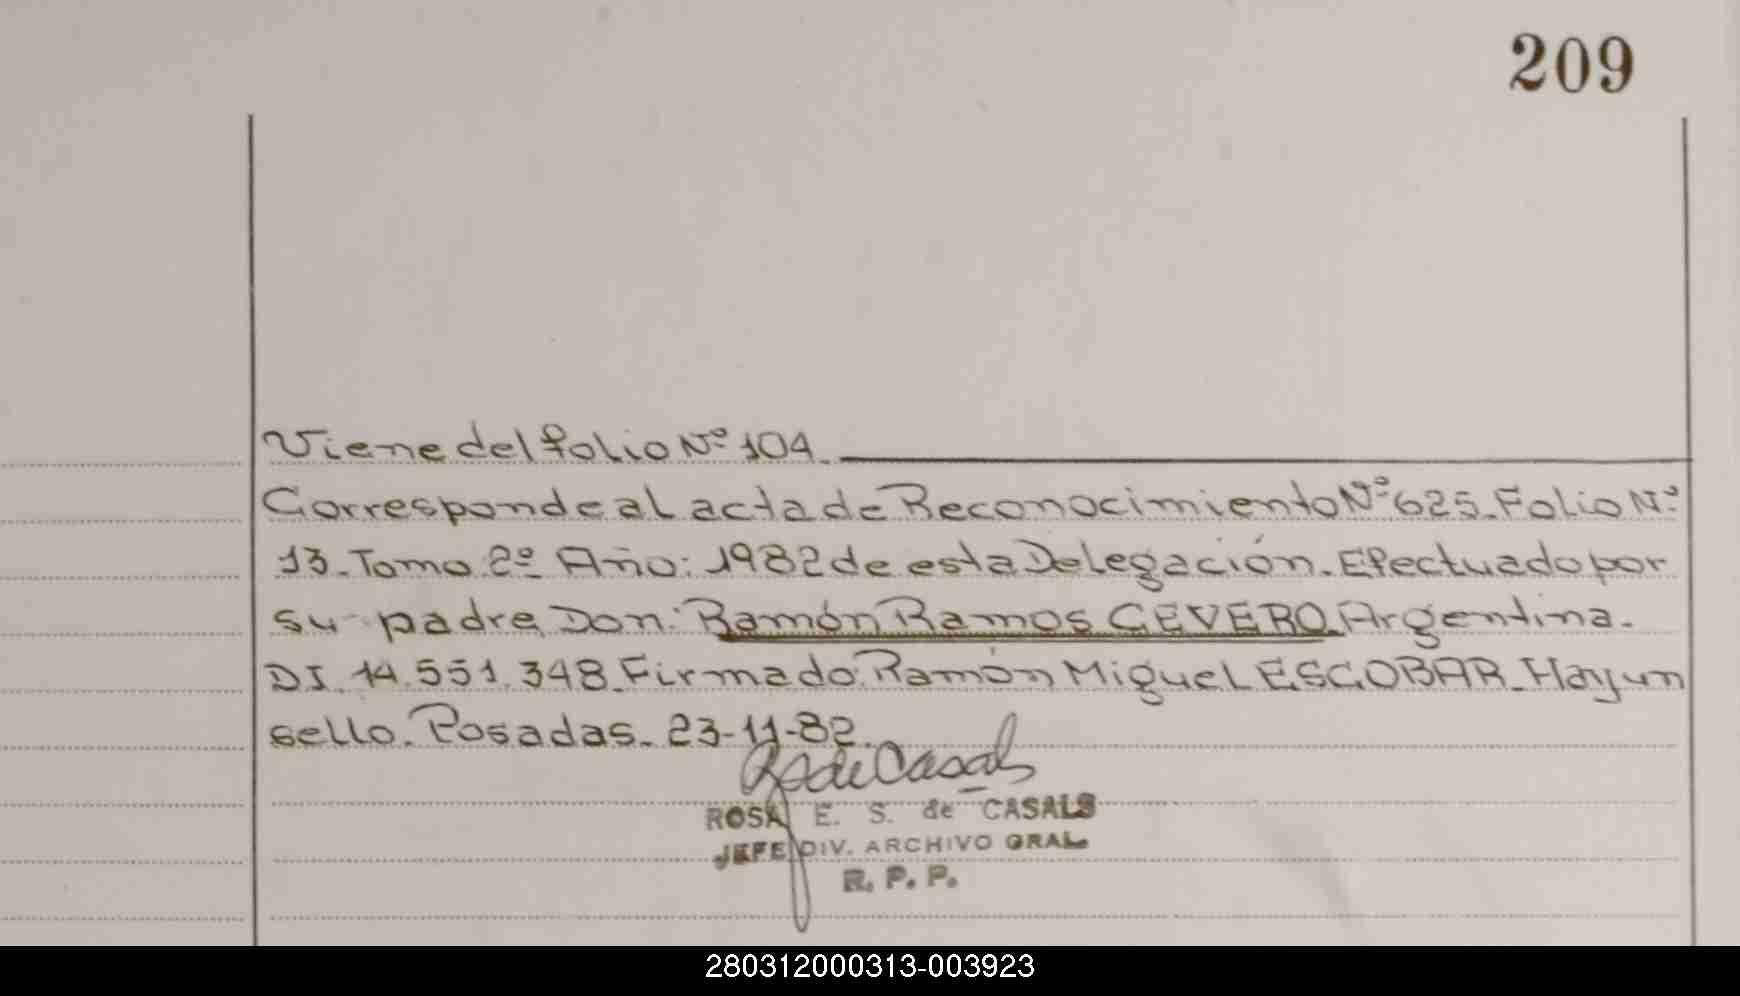 209
Viene del folio Nº 104.
Corresponde al acta de Reconocimiento Nº 625. Folio Nº
13. Tomo 2º Año: 1982 de esta Delegación. Efectuado por
su padre Don: Ramón Ramos CEVERO. Argentina.
DI. 14.551.348. Firmado: Ramón Miguel ESCOBAR. Hay un
sello. Posadas. 23-11-82.
de Casals
ROSA E. S. de CASALS
JEFE DIV. ARCHIVO GRAL.
R. P. P.
280312000313-003923